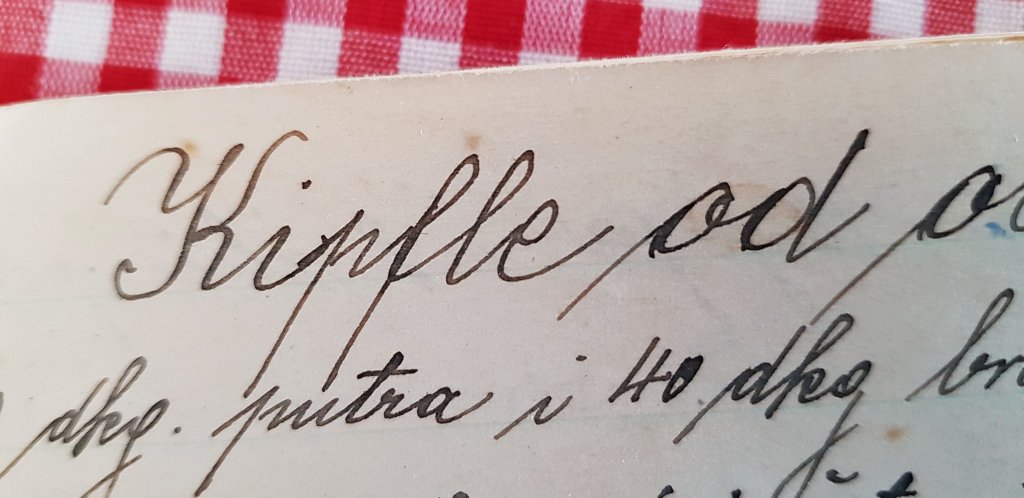 Kipfle od
dkg. putra i 40 dkg